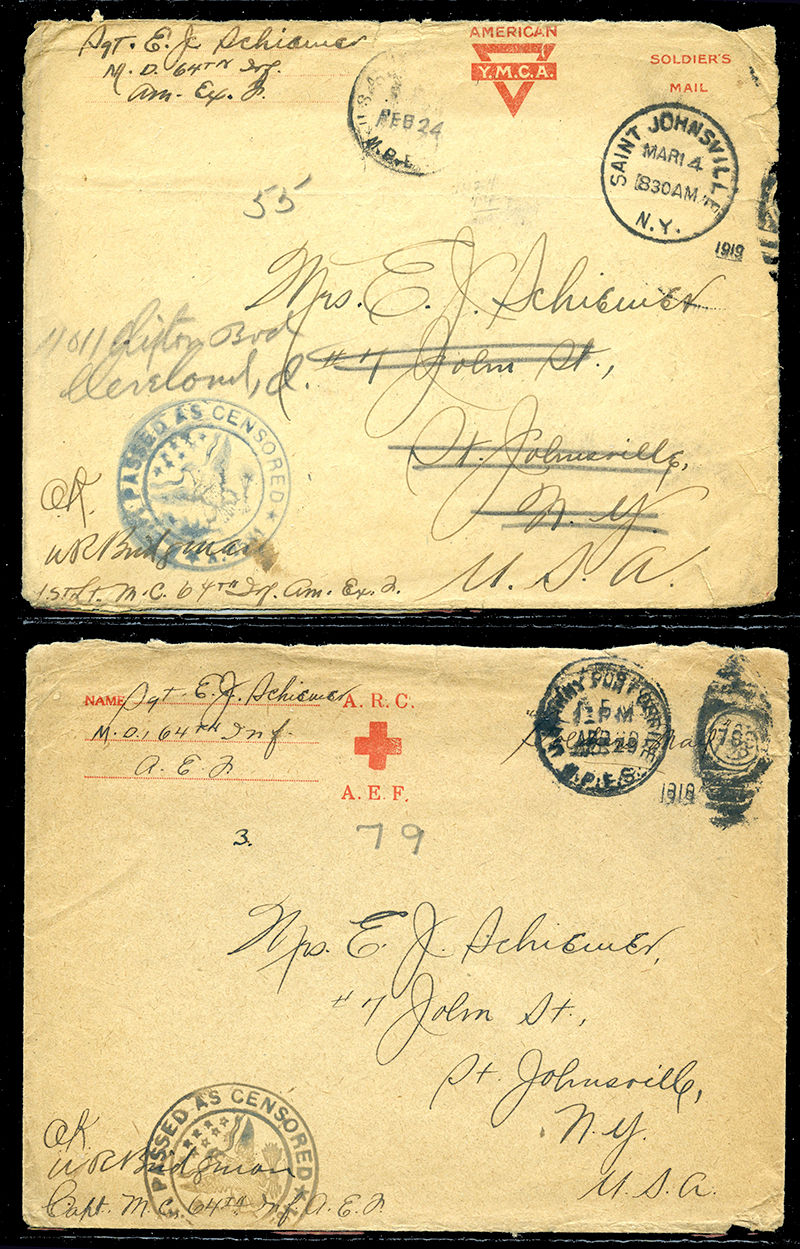 Sgt. E. J. Schiewer
M. D. 64TH Inf.
Am. Ex. F.
AMERICAN
Y.M.C.A.
SOLDIER'S
MAIL
FEB 24
M.P.E.
SAINT JOHNSVILLE
MAR 14
830AM
N.Y.
1919
55
Mrs. E. J. Schiewer
#7 John St.,
St. Johnsville,
N. Y.
U. S. A.
11011 Clifton Bvd
Cleveland, O.
PASSED AS CENSORED
OK.
W R Bridgman
1st Lt. M. C. 64TH Inf. Am. Ex. F.
NAME Sgt E. J. Schiewer
M. D. 64TH Inf
A. E. F.
A. R. C.
A. E. F.
PM
29
M.P.E.S.
Mail
1919
3.
79
Mrs. E. J. Schiewer,
#7 John St.,
St. Johnsville,
N. Y.
U. S. A.
PASSED AS CENSORED
OK
W R Bridgman
Capt. M. C. 64TH Inf A. E. F.